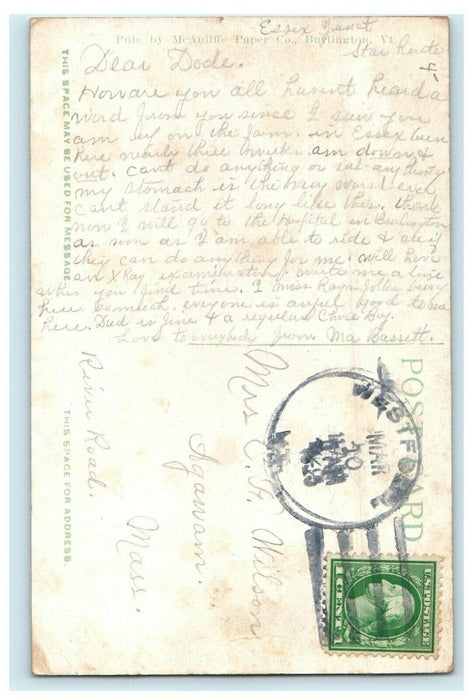 Pub. by McAuliffe Paper Co., Burlington, Vt.
Essex Junct
Star Route
4
Dear Dode.
How are you all havent heard a
word from you since I saw you
am up on the farm. in Essex been
here nearly three weeks. am down &
out. cant do anything or eat anything
my stomach is the very worst ever
cant stand it long like this. think
now I will go to the Hospital in Burlington
as soon as I am able to ride & see if
they can do anything for me. will have
an X Ray examination. write me a line
when you find time. I miss Ray's folks being
here so much. everyone is awful good to me
here. Dad is fine & a regular Chore Boy.
Love to everybody from Ma Bassett.
THIS SPACE MAY BE USED FOR MESSAGE
THIS SPACE FOR ADDRESS
POST CARD
Mrs C. F. Wilson
Agawam.
Mass.
River Road.
WESTFORD
MAR
10
VT.
U.S. POSTAGE
1 CENT 1